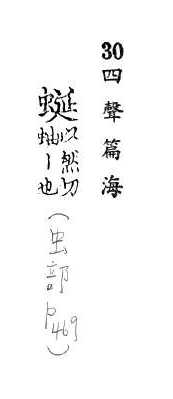 30四聲篇海
蜒以然切蚰丨也(虫部p.469)